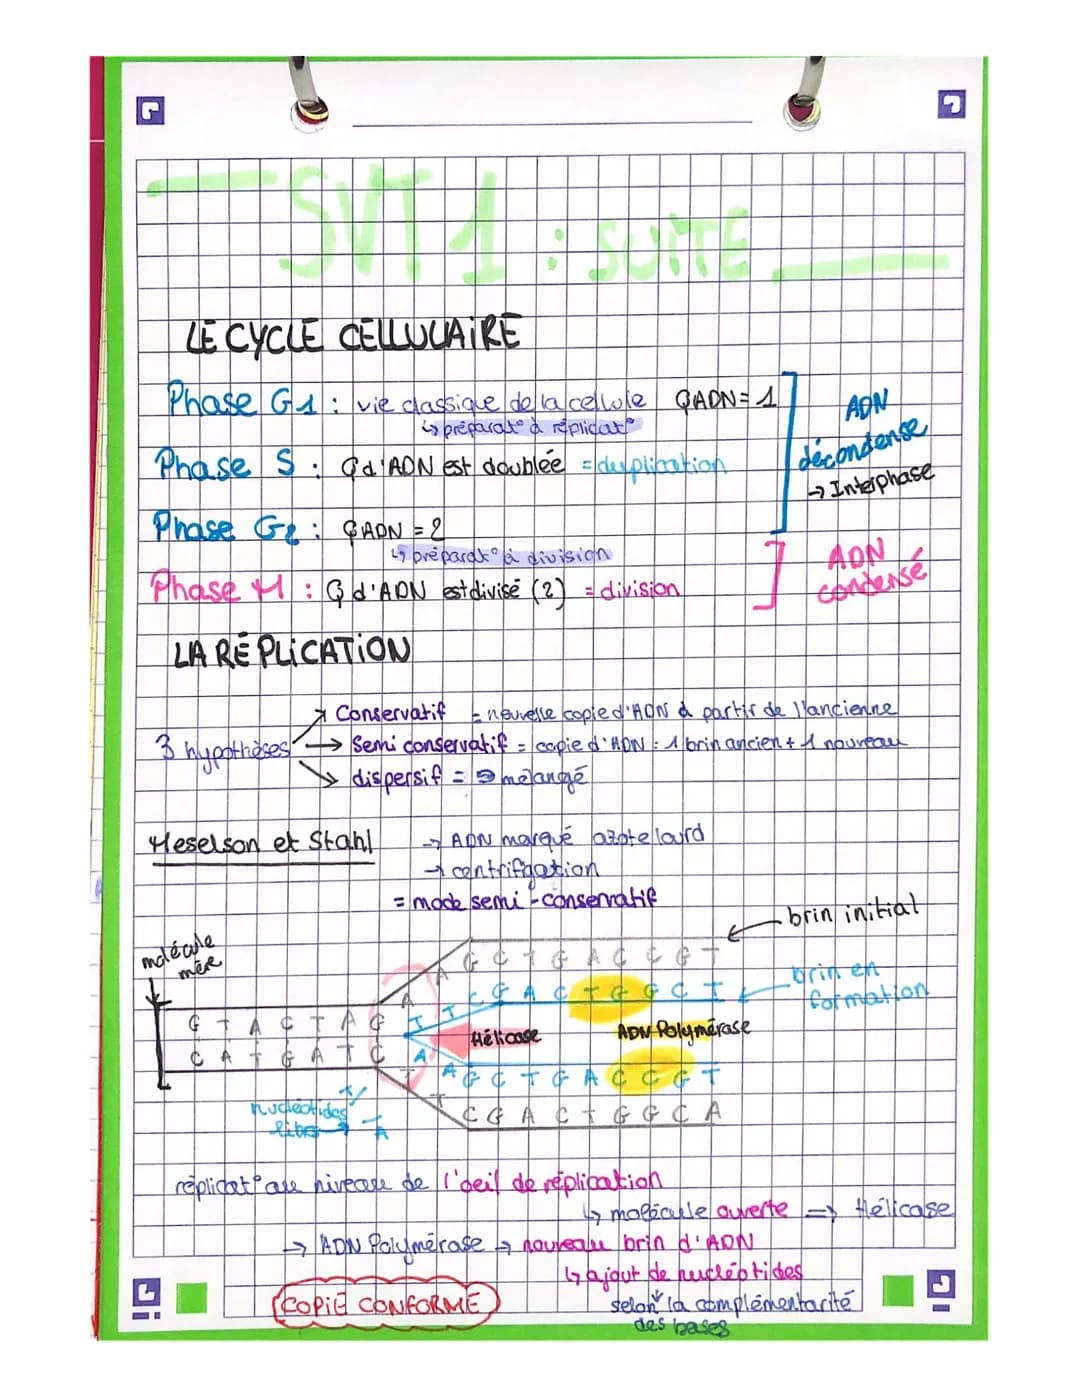 SVT 1 : SUITE
LE CYCLE CELLULAIRE
Phase G1 : vie classique de la cellule QADN = 1
↳ préparat° à réplicat°
Phase S : Q d'ADN est doublée = duplication
Phase G2 : QADN = 2
↳ préparat° à division
Phase M : Q d'ADN est divisé (2) = division
ADN
décondensé
→ Interphase
ADN
condensé
LA RÉPLICATION
3 hypothèses
↗ Conservatif = nouvelle copie d'ADN à partir de l'ancienne
→ Semi conservatif = copie d'ADN : 1 brin ancien + 1 nouveau
↘ dispersif = mélangé
Meselson et Stahl → ADN marqué azote lourd
→ centrifgation
= mode semi-conservatif
brin initial
molécule
mère
A G C T G A C C G T
brin en
formation
T T C G A C T G G C T
G T A C T A G A
C A T G A T C T
Hélicase
ADN Polymérase
A A G C T G A C C G T
T C G A C T G G C A
nucléotides
libres
T
A
réplicat° au niveau de l'oeil de réplication
↳ molécule ouverte ⇒ Hélicase
→ ADN Polymérase → nouveau brin d'ADN
↳ ajout de nucléotides
selon la complémentarité
des bases
COPIE CONFORME